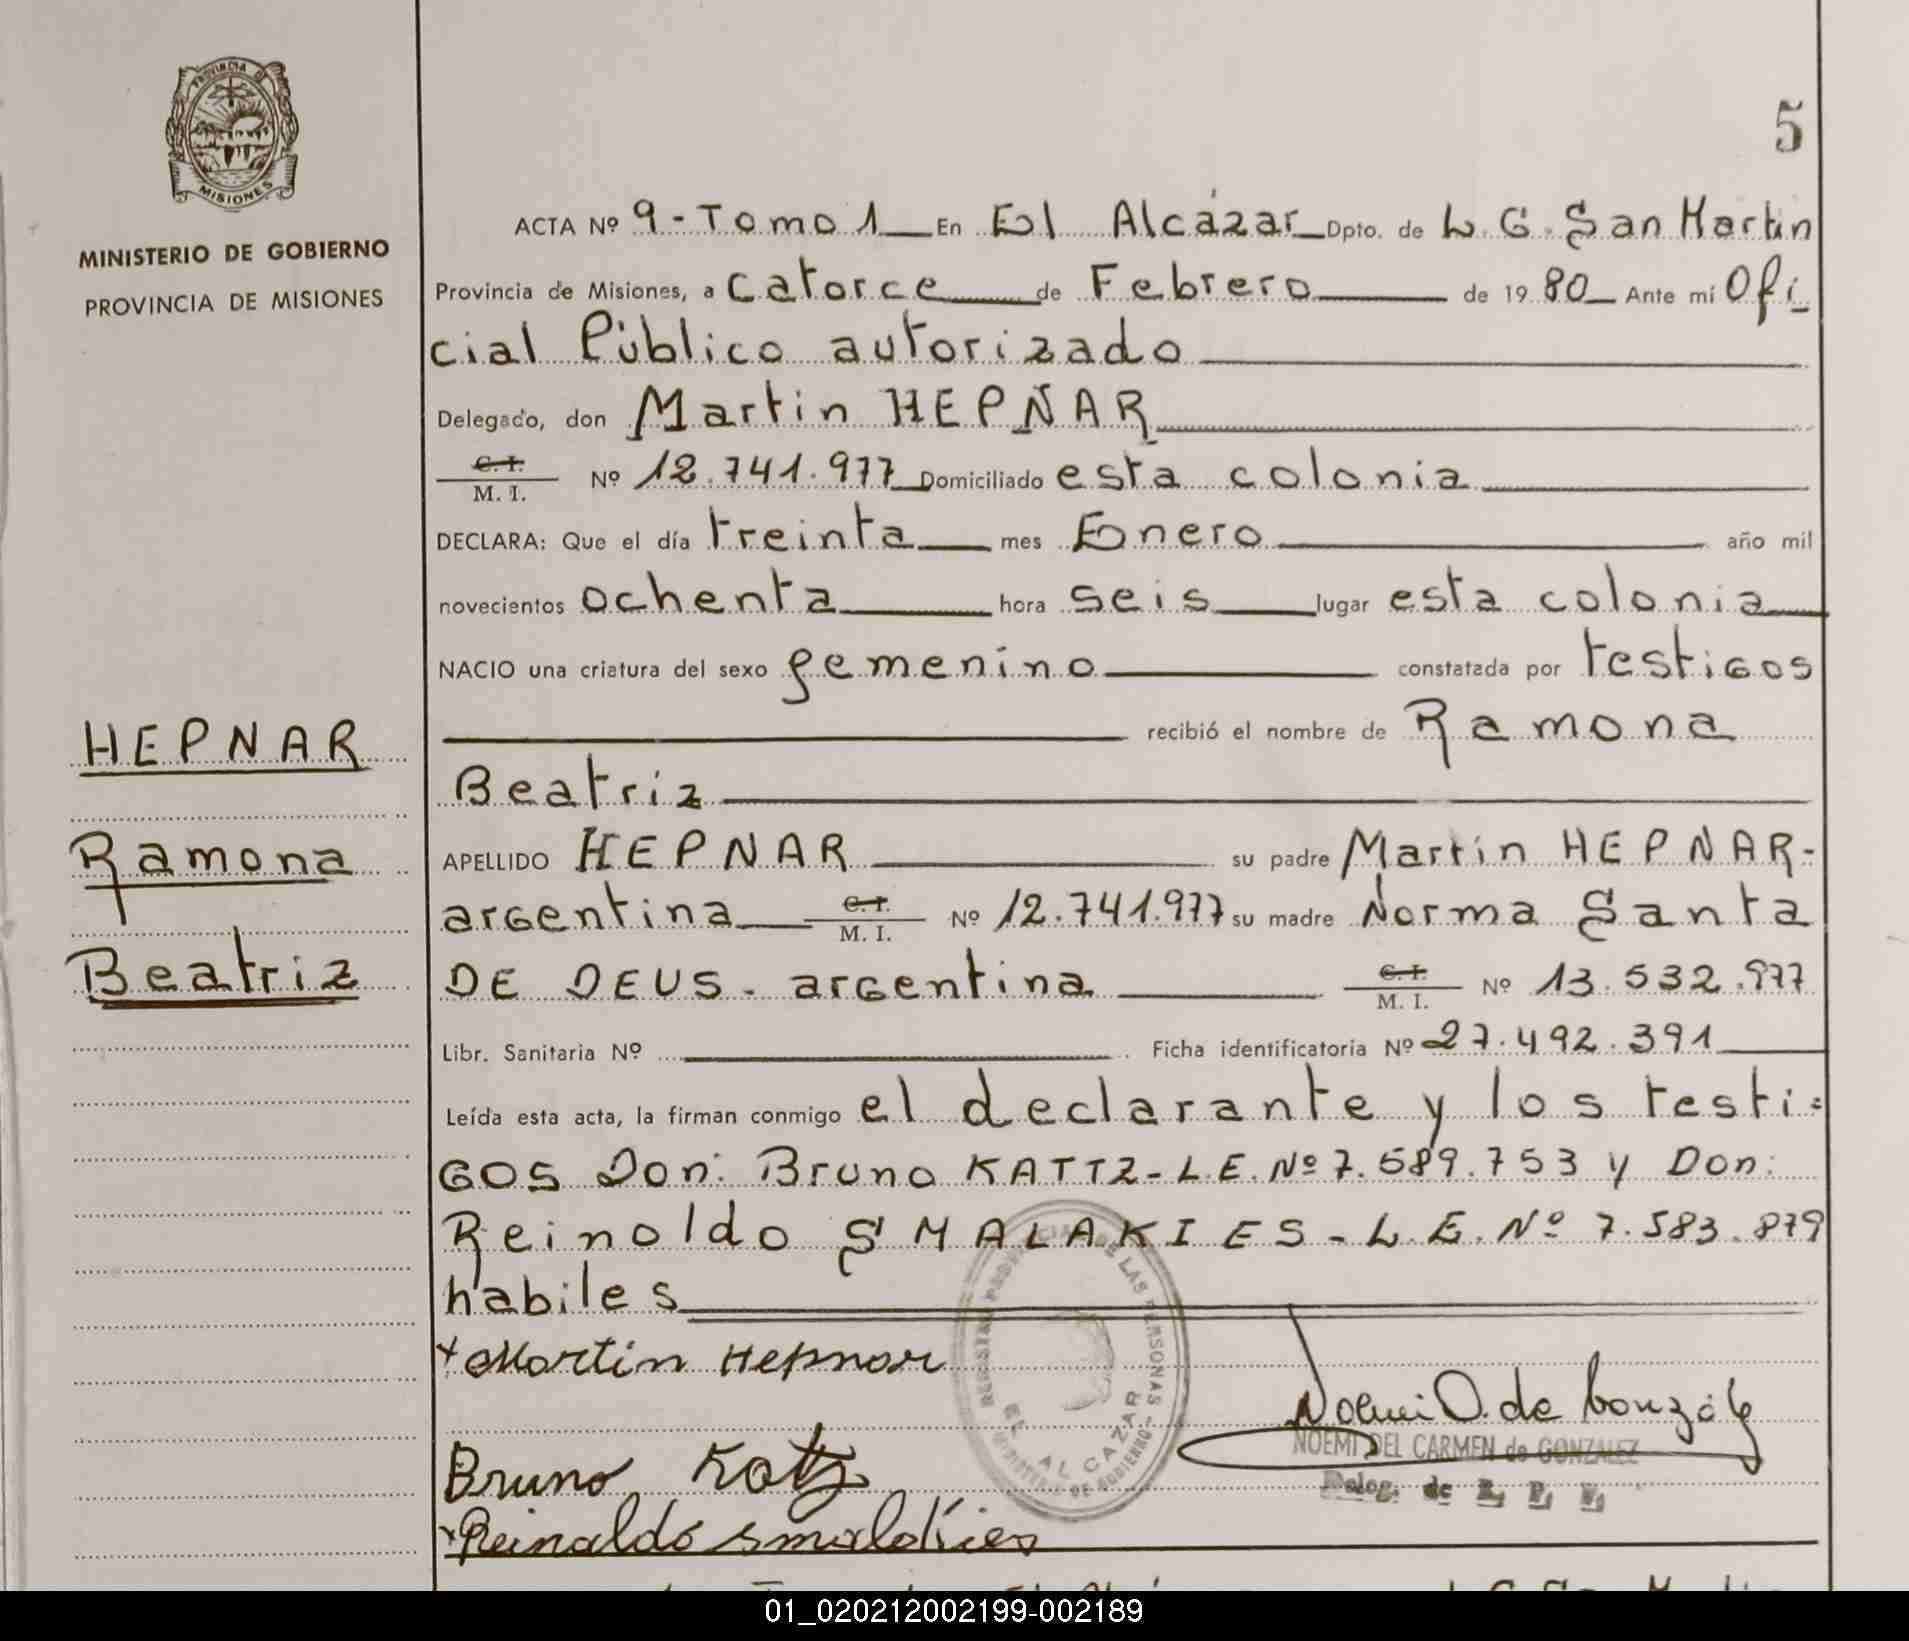 PROVINCIA DE
MISIONES
MINISTERIO DE GOBIERNO
PROVINCIA DE MISIONES
HEPNAR
Ramona
Beatriz
5
ACTA Nº 9 - Tomo 1 En El Alcázar Dpto. de L. G. San Martin
Provincia de Misiones, a catorce de Febrero de 1980 Ante mí Ofi
cial Público autorizado
Delegado, don Martin HEPÑAR
C. I.
M. I. Nº 12.741.977 Domiciliado esta colonia
DECLARA: Que el día treinta mes Enero año mil
novecientos ochenta hora seis lugar esta colonia
NACIO una criatura del sexo femenino constatada por testigos
recibió el nombre de Ramona
Beatriz
APELLIDO HEPNAR su padre Martin HEPNAR-
argentina C. I. M. I. Nº 12.741.977 su madre Norma Santa
DE DEUS - argentina C. I. M. I. Nº 13.532.977
Libr. Sanitaria Nº Ficha identificatoria Nº 27.492.391
Leída esta acta, la firman conmigo el declarante y los testi=
gos Don: Bruno KATTZ - L.E. Nº 7.589.753 y Don:
Reinoldo SMALAKIES - L.E. Nº 7.583.879
habiles
+ Martin Hepnar
Bruno Katz
Reinaldo Smalakies
REGISTRO PROVINCIAL DE LAS PERSONAS
EL ALCAZAR
MINISTERIO DE GOBIERNO
Noemi D. de González
NOEMI DEL CARMEN de GONZALEZ
Deleg. de R. P. P.
01_020212002199-002189